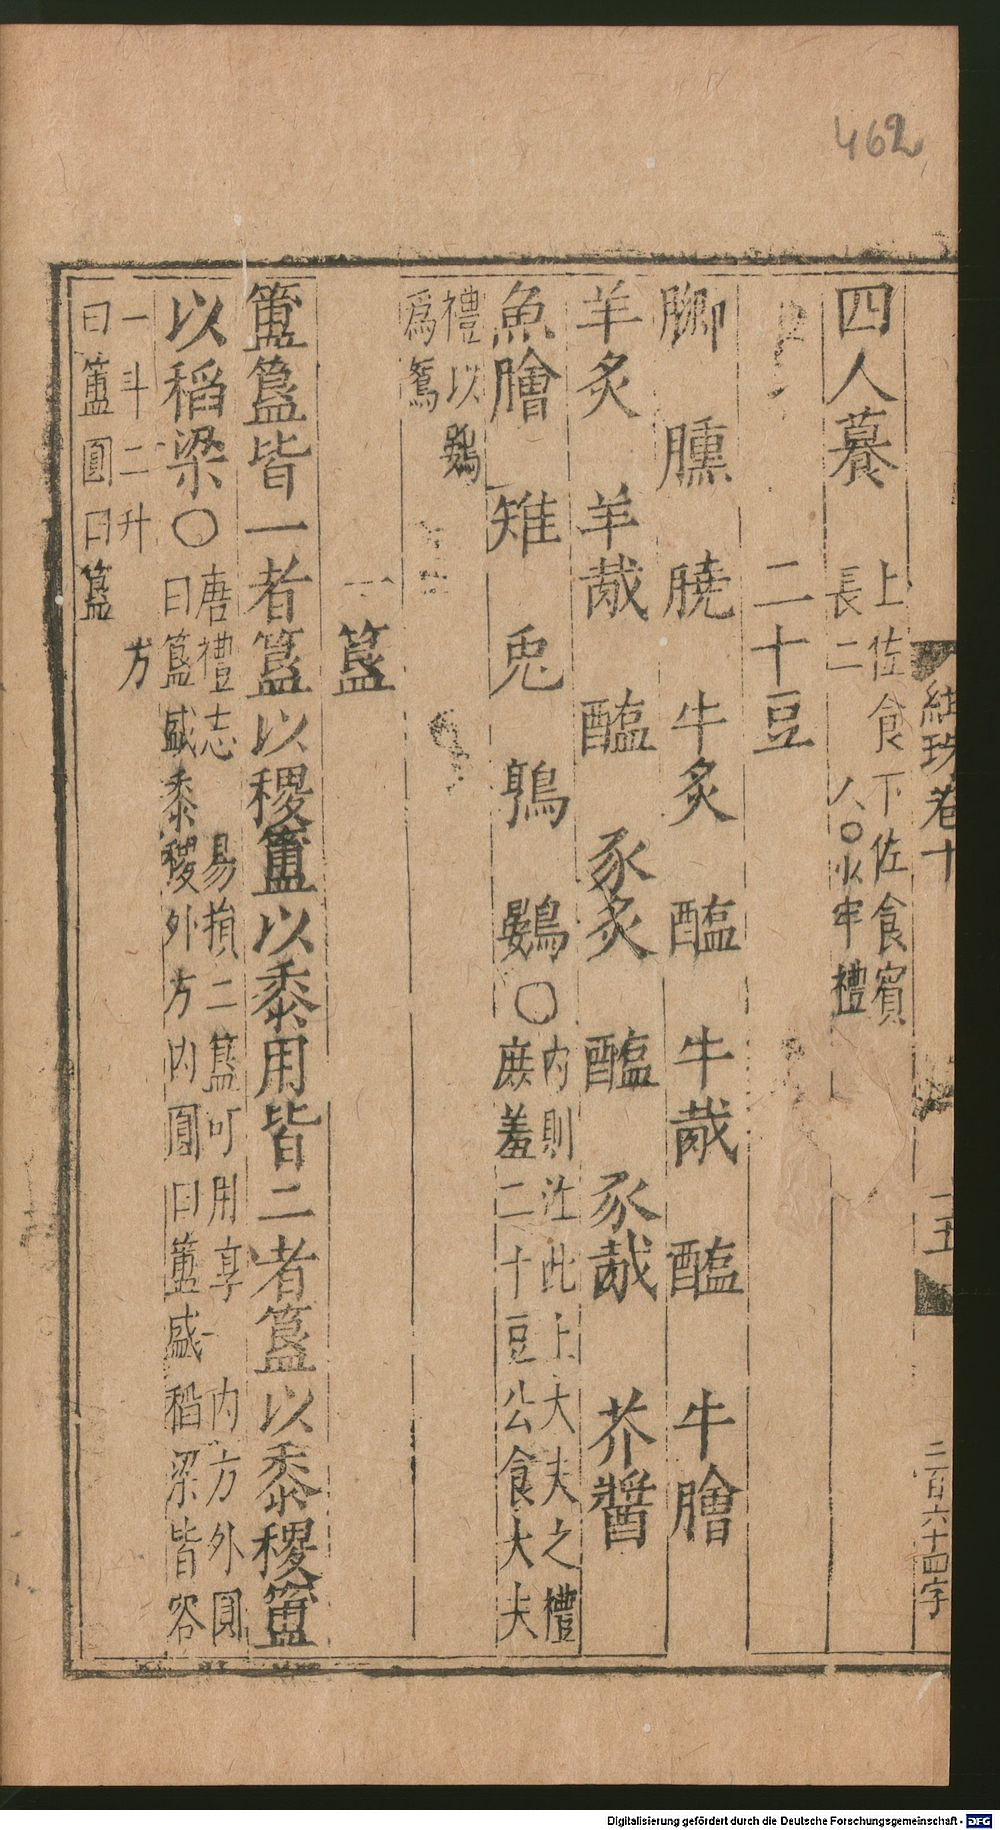 462
紺珠卷十
十五
二百六十四字
四人餕 上佐食下佐食賓
長二人〇少牢禮
二十豆
膷 臐 膮 牛炙 醢 牛胾 醢 牛膾
羊炙 羊胾 醢 豕炙 醢 豕胾 芥醬
魚膾 雉 兎 鶉 鷃〇 內則註此上大夫之禮
庶羞二十豆公食大夫
禮以鷃
爲鴽
簋
簠簋皆一者簋以稷簠以黍用皆二者簋以黍稷簠
以稻梁〇 唐禮志 易損二簋可用享 內方外圓
曰簋盛黍稷外方內圓曰簠盛稻梁皆容
一斗二升 方
曰簠圓曰簋
Digitalisierung gefördert durch die Deutsche Forschungsgemeinschaft - DFG